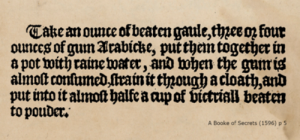 Take an ounce of beaten gaule, three or four
ounces of gum Arabicke, put them together in
a pot with raine water, and when the gum is
almost consumed, strain it through a cloath, and
put into it almost halfe a cup of victriall beaten
to pouder.
A Booke of Secrets (1596) p 5